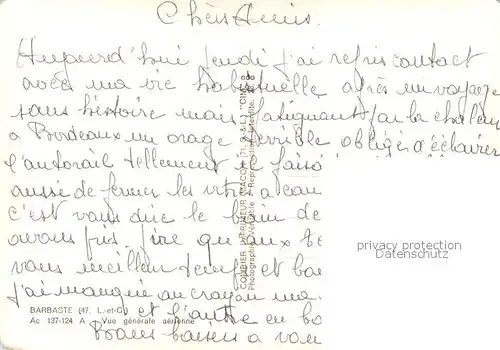 Chers Amis.
Aujourd'hui jeudi j'ai repris contact
avec ma vie habituelle après un voyage
sans histoire mais fatiguant par la chaleur
a Bordeaux un orage terrible obligés d'éclairer
l'autorail tellement il faisa
aussi de fermer les vitres a cau
c'est vous dire le bain de
avons pris. pire qu'aux
vous meilleur temps et bon
J'ai manqué au crayon ma
et l'autre en bo
Bons baisers a vou
BARBASTE (47. L.-et-G.)
Ac 137-124 A Vue générale aérienne
COMBIER IMPRIMEUR MACON "CIM"
Photographie Véritable Reproduction Interdite
privacy protection
Datenschutz